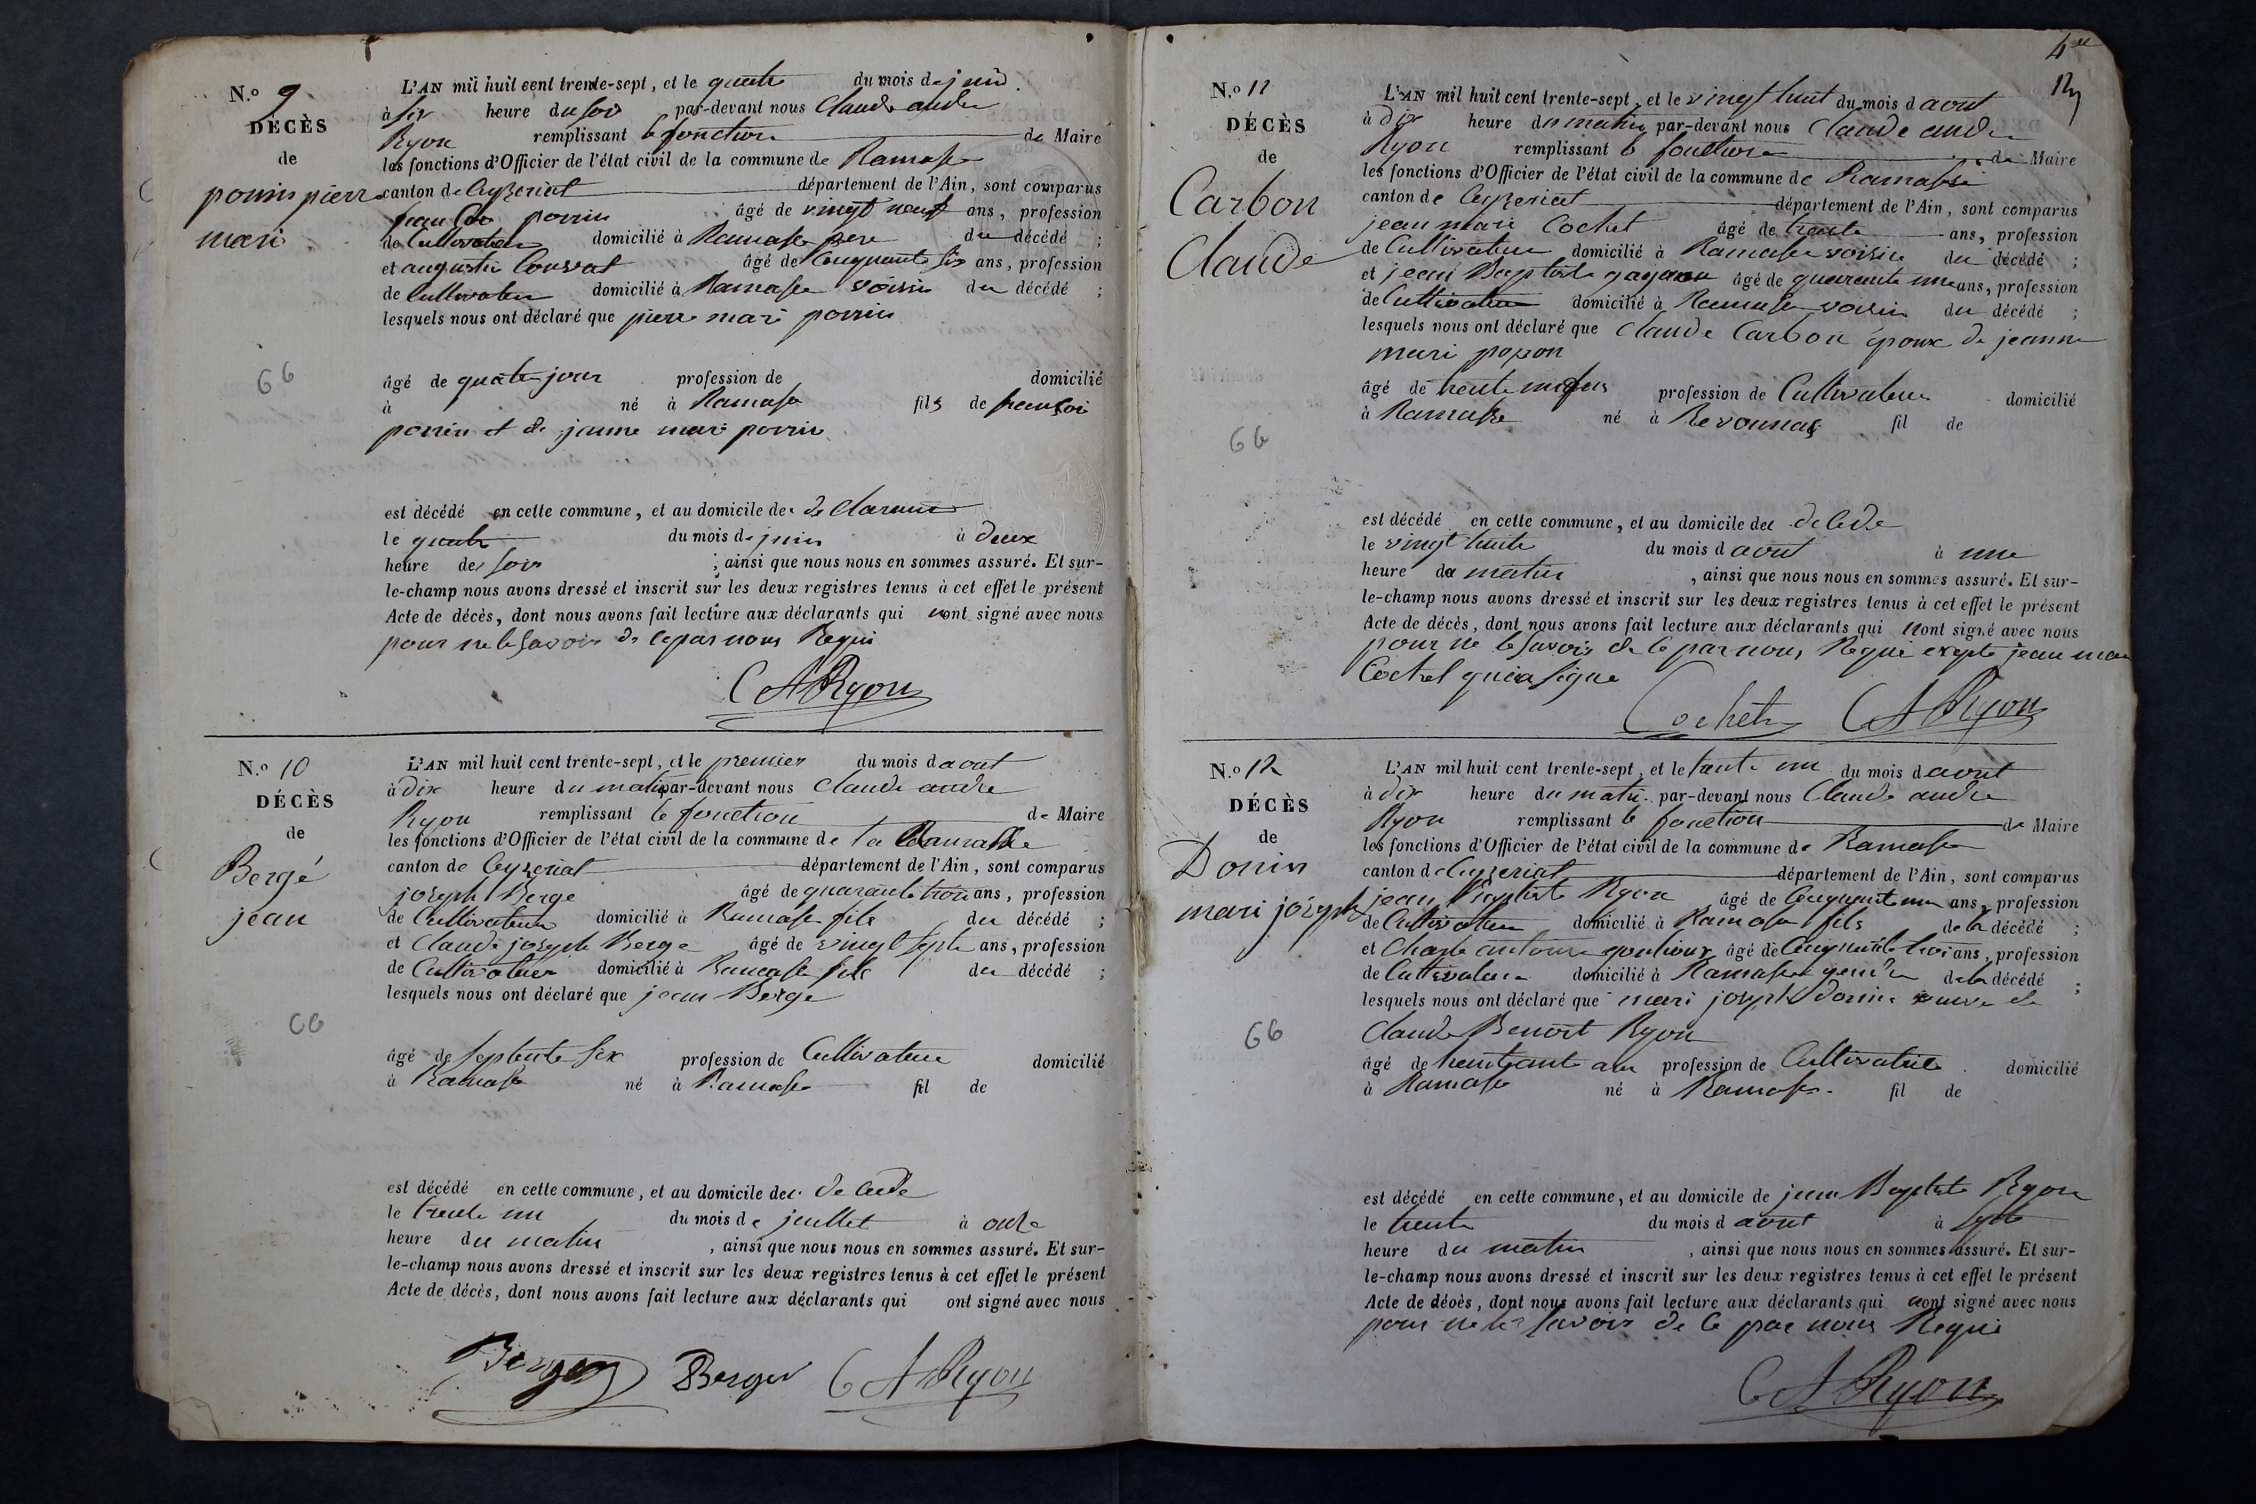 N.o 9
DÉCÈS
de
porrin pierre
mari
66
L'AN mil huit cent trente-sept, et le quatre du mois de juin
à six heure du soir par-devant nous Claude andre
Ryon remplissant le fonction de Maire
les fonctions d'Officier de l'état civil de la commune de Ramasse
canton de Ceyzeriat département de l'Ain, sont comparus
porrin âgé de vingt neuf ans, profession
de Cultivateur domicilié à Ramasse pere du décédé ;
et augustin Convert âgé de Cinquante six ans, profession
de Cultivateur domicilié à Ramasse voisin du décédé ;
lesquels nous ont déclaré que pierre mari porrin
âgé de quatre jour profession de domicilié
à né à Ramasse fils de françoi
porrin et de jeanne mari porrin
est décédé en cette commune, et au domicile de
le quatre du mois de juin à deux
heure de soir ; ainsi que nous nous en sommes assuré. Et sur-
le-champ nous avons dressé et inscrit sur les deux registres tenus à cet effet le présent
Acte de décès, dont nous avons fait lecture aux déclarants qui nont signé avec nous
pour ne le savoir de ce par nous Requi
CARyon
N.o 10
DÉCÈS
de
Bergé
jean
66
L'AN mil huit cent trente-sept, et le premier du mois d aout
à dix heure du matin par-devant nous Claude andre
Ryon remplissant le fonction de Maire
les fonctions d'Officier de l'état civil de la commune de la Ramasse
canton de Ceyzeriat département de l'Ain, sont comparus
joseph Berge âgé de quarante trois ans, profession
de Cultivateur domicilié à Ramasse fils du décédé ;
et Claude joseph Berge âgé de vingt septe ans, profession
de Cultivateur domicilié à Ramasse fils du décédé ;
lesquels nous ont déclaré que jean Berge
âgé de septente six profession de Cultivateur domicilié
à Ramasse né à Ramasse fil de
est décédé en cette commune, et au domicile du de cede
le trente un du mois de juillet à onze
heure du matin , ainsi que nous nous en sommes assuré. Et sur-
le-champ nous avons dressé et inscrit sur les deux registres tenus à cet effet le présent
Acte de décès, dont nous avons fait lecture aux déclarants qui ont signé avec nous
Berger Berger CARyon
N.o 11
DÉCÈS
de
Carbon
Claude
66
L'AN mil huit cent trente-sept, et le vingt huit du mois d aout
à dix heure du matin par-devant nous Claude andre
Ryon remplissant le fonction de Maire
les fonctions d'Officier de l'état civil de la commune de Ramasse
canton de Ceyzeriat département de l'Ain, sont comparus
jean mari Cochet âgé de trente ans, profession
de Cultivateur domicilié à Ramasse voisin du décédé ;
et jean Baptiste âgé de quarante une ans, profession
de Cultivateur domicilié à Ramasse voisin du décédé ;
lesquels nous ont déclaré que Claude Carbon époux de jeanne
mari
âgé de trente profession de Cultivateur domicilié
à Ramasse né à Revonnas fil de
est décédé en cette commune, et au domicile du de cede
le vingt huite du mois d aout à une
heure du matin , ainsi que nous nous en sommes assuré. Et sur-
le-champ nous avons dressé et inscrit sur les deux registres tenus à cet effet le présent
Acte de décès, dont nous avons fait lecture aux déclarants qui nont signé avec nous
pour ne le savoir de ce par nous Requi exepte jean mari
Cochet qui a signe
Cochet CARyon
N.o 12
DÉCÈS
de
Donin
mari joseph
66
L'AN mil huit cent trente-sept, et le trente un du mois d aout
à dix heure du matin par-devant nous Claude andre
Ryon remplissant le fonction de Maire
les fonctions d'Officier de l'état civil de la commune de Ramasse
canton d Ceyzeriat département de l'Ain, sont comparus
jean Baptiste Ryon âgé de Cinquante un ans, profession
de Cultivateur domicilié à Ramasse fils de la décédé ;
et Charle antoine âgé de Cinquante trois ans, profession
de Cultivateur domicilié à Ramasse gendre de la décédé ;
lesquels nous ont déclaré que mari joseph donin veuve de
Claude Benoit Ryon
âgé de profession de Cultivatrice domicilié
à Ramasse né à Ramasse fil de
est décédé en cette commune, et au domicile de jean Baptiste Ryon
le trente du mois d aout à septe
heure du matin , ainsi que nous nous en sommes assuré. Et sur-
le-champ nous avons dressé et inscrit sur les deux registres tenus à cet effet le présent
Acte de décès, dont nous avons fait lecture aux déclarants qui nont signé avec nous
pour ne le savoir de ce par nous Requi
CARyon